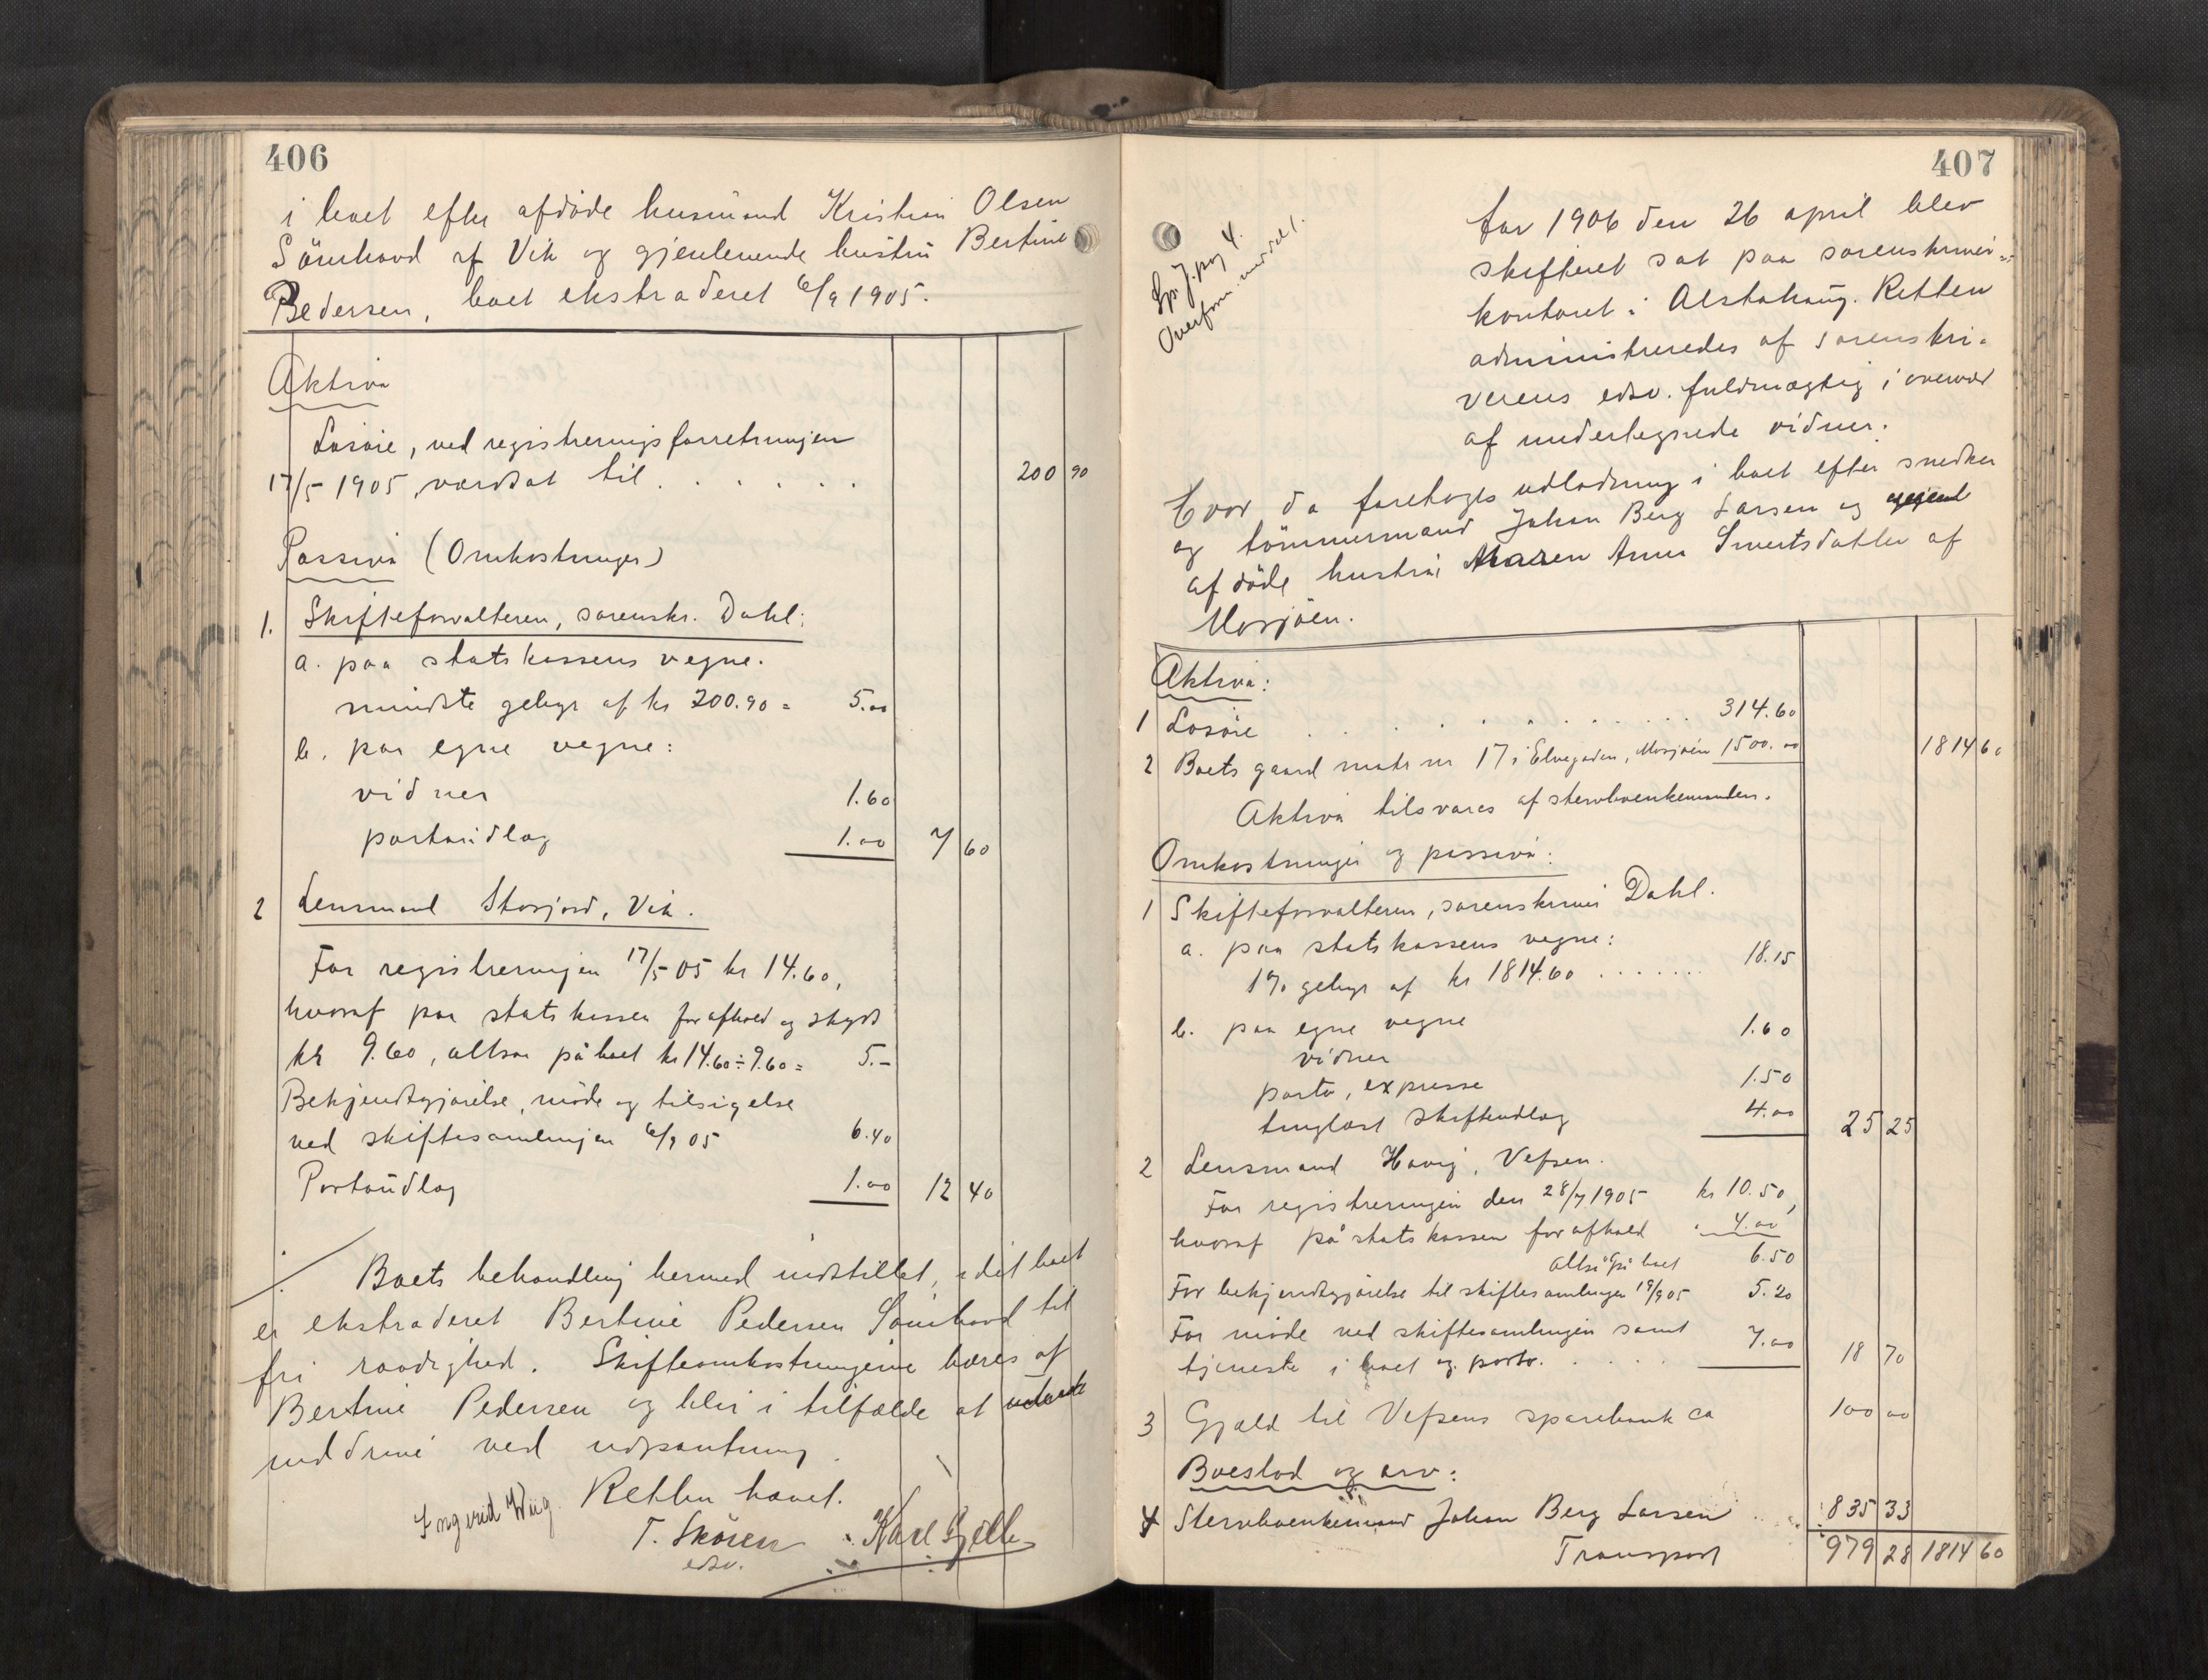 406
i boet efter afdøde husmand Kristian Olsen
Sörnhovd af Vik og gjenlevende hustru Bertine
Pedersen, boet ekstraderet 6/9 1905.
Aktiva
Løsøre, ved registreringsforretningen
17/5 1905, værdsat til . . . . . . . 200 90
Passiva (Omkostninger)
1. Skifteforvalteren, sorenskr. Dahl:
a. paa statskassens vegne.
mindste gebyr af kr 200.90 = 5.00
b. paa egne vegne:
vidner 1.60
portoudlag 1.00 7 60
2 Lensmand Storjord, Vik.
For registreringen 17/5 05 kr 14.60,
hvoraf paa statskassen for afhold og skyds
kr 9.60, altsaa på boet kr 14.60 ÷ 9.60 = 5.–
Bekjendtgjørelse, møde og tilsigelse
ved skiftesamlingen 6/9 05 6.40
Portoudlag 1.00 12 40
Boets behandling hermed indstillet, idet boet
er ekstraderet Bertine Pedersen Sörnhovd til
fri raadighed. Skifteomkostningerne bæres af
Bertine Pedersen og blir i tilfælde at
inddrive ved udpantning
Retten hævet.
Ingerid Wiig. T. Skören Karl Gjelle
edsv.
407
Sp. J. pag 4.
Overform.
Aar 1906 den 26 april blev
skifteret sat paa sorenskriver-
kontoret i Alstahaug. Retten
administreredes af sorenskri-
verens edsv. fuldmægtig i overvær
af undertegnede vidner.
Hvor da foretoges udlodning i boet efter snedker
og tömmermand Johan Berg Larsen og
afdöde hustru Maren Anna Sivertsdatter af
Mosjøen.
Aktiva:
1 Løsøre . . . . . . . . . . 314.60
2 Boets gaard matr nr 17 i Elvegaden, Mosjøen 1500.00 1814 60
Aktiva tilsvares af stervboenkemanden.
Omkostninger og passiva:
1 Skifteforvalteren, sorenskriver Dahl.
a. paa statskassens vegne:
1% gebyr af kr 1814.60 . . . . . . . 18.15
b. paa egne vegne
vidner 1.60
porto, expresse 1.50
tinglæst skifteudlæg 4.00 25 25
2 Lensmand Havig, Vefsen.
For registreringen den 28/7 1905 kr 10.50,
hvoraf på statskassen for afhold " 4.00
altså på boet 6.50
For bekjendtgjørelse til skiftesamlingen 19/9 05 5.20
For møde ved skiftesamlingen samt
tjeneste i boet og porto. . . . . 7.00 18 70
3 Gjæld til Vefsens sparebank ca 100 00
Boeslod og arv:
4 Stervboenkemand Johan Berg Larsen . . . 835 33
Transport 979 28 1814 60